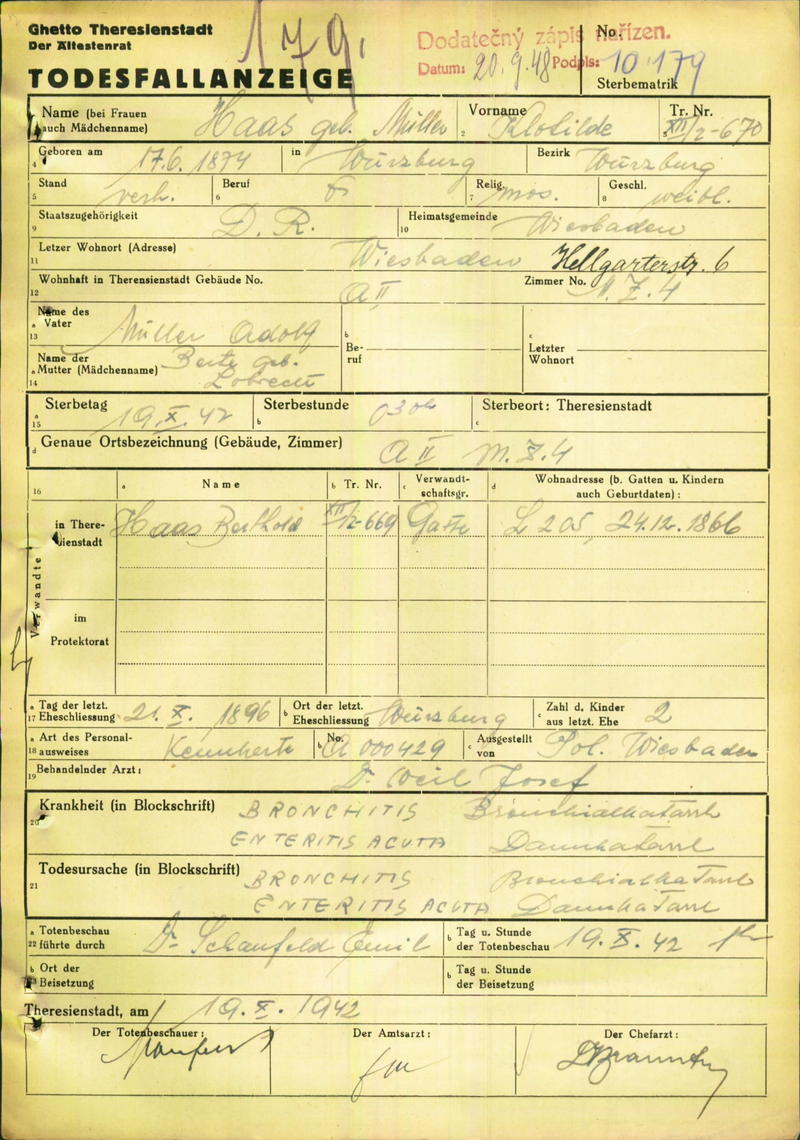 Ghetto Theresienstadt
Der Ältestenrat
TODESFALLANZEIGE
179.
Dodatečný zápis nařízen.
Datum: 20.9.48 Podpis:
No. 10179
Sterbematrik
Name (bei Frauen auch Mädchenname) Haas geb. Müller 2 Vorname Klotilde Tr. Nr. XII/2-670
4 Geboren am 17.6. 1874 in Würzburg Bezirk Würzburg
5 Stand verh. 6 Beruf 7 Relig. mos. 8 Geschl. weibl.
9 Staatszugehörigkeit D. R. 10 Heimatsgemeinde Wiesbaden
11 Letzer Wohnort (Adresse) Wiesbaden 6
12 Wohnhaft in Therensienstadt Gebäude No. A II Zimmer No. Z. 4
13 a Name des Vater Müller Adolf b Beruf c Letzter Wohnort
14 a Name der Mutter (Mädchenname) geb.
15 a Sterbetag 19. X. 42 b Sterbestunde c Sterbeort: Theresienstadt
d Genaue Ortsbezeichnung (Gebäude, Zimmer) A II M. Z. 4
16 a Name b Tr. Nr. c Verwandtschaftsgr. d Wohnadresse (b. Gatten u. Kindern auch Geburtdaten):
Verwandte
in Theresienstadt Haas Berthold XII/2-669 Gatte L 205, 24.12. 1866
im Protektorat
17 a Tag der letzt. Eheschliessung 21. X. 1896 b Ort der letzt. Eheschliessung Würzburg c Zahl d. Kinder aus letzt. Ehe 2
18 a Art des Personalausweises b No. A 000429 c Ausgestellt von Pol. Wiesbaden
19 Behandelnder Arzt: Dr Weil Josef
20 Krankheit (in Blockschrift) BRONCHITIS Bronchialkatarrh
ENTERITIS ACUTA Darmkatarrh
21 Todesursache (in Blockschrift) BRONCHITIS Bronchialkatarrh
ENTERITIS ACUTA Darmkatarrh
22 a Totenbeschau führte durch Dr Emil b Tag u. Stunde der Totenbeschau 19. X. 42
b Ort der Beisetzung b Tag u. Stunde der Beisetzung
Theresienstadt, am 19. X. 1942
Der Totenbeschauer: Der Amtsarzt: Der Chefarzt: